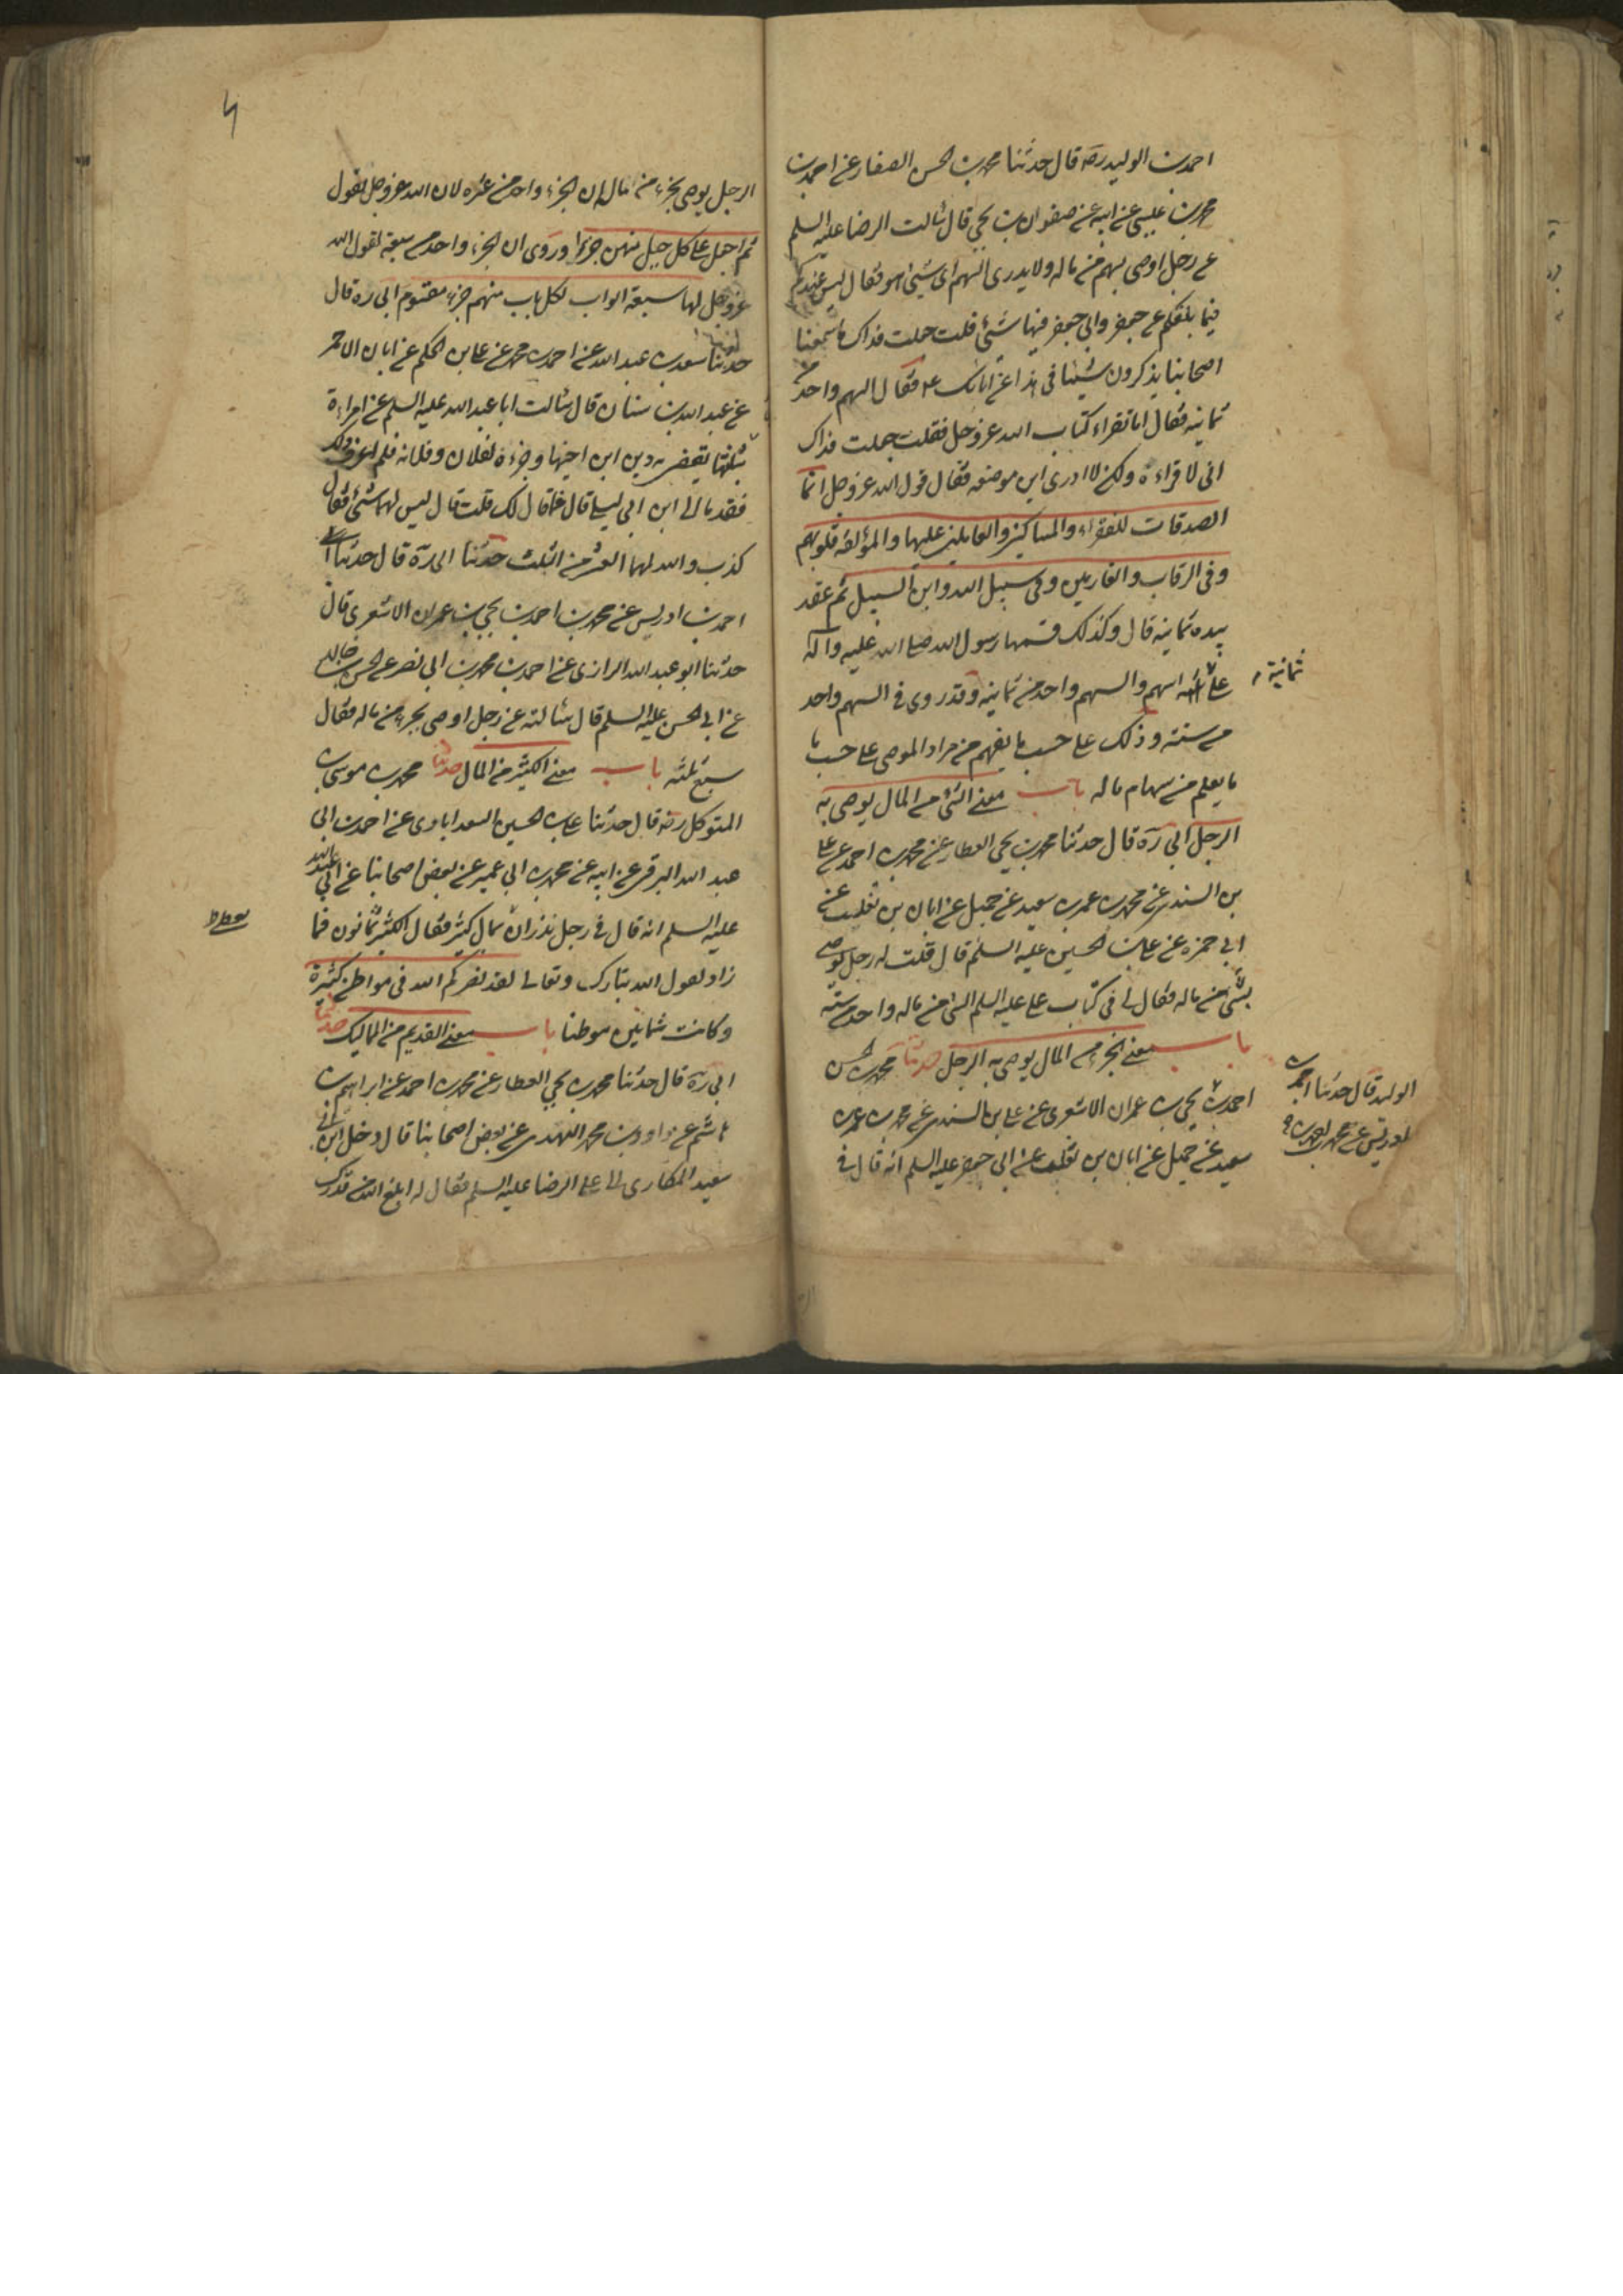 احمد بن الوليد رضه قال حدثنا محمد بن الحسن الصفار عن احمد بن
محمد بن عيسى عن ابيه عن صفوان بن يحيى قال سالت الرضا عليه السلم
عن رجل اوصى بسهم من ماله ولا يدرى السهم اى شيئ هو فقال ليس عندكم
فيما بلغكم عن جعفر وابى جعفر فيها شئ قلت جعلت فداك ما سمعنا
اصحابنا يذكرون شيئا فى هذا عن ابائك ع فقال السهم واحد من
ثمانيه فقال اما تقراء كتاب الله عز وجل فقلت جعلت فداك
انى لاقراءه ولكن لا ادرى اين موضعه فقال قول الله عز وجل انما
الصدقات للفقراء والمساكين والعاملين عليها والمؤلفه قلوبهم
وفى الرقاب والغارمين وفى سبيل الله وابن السبيل ثم عقد
بيده ثمانيه قال وكذلك قسمها رسول الله صلى الله عليه واله
على اسهم والسهم واحد من ثمانيه وقد روى فى السهم واحد
ثمانية
من سته وذلك على حسب ما يفهم من مراد الموصى على حسب ما
ما يعلم من سهام ماله باب معنى الشئ من المال يوصى به
الرجل ابى ره قال حدثنا محمد بن يحيى العطار عن محمد بن احمد عن على
بن السندى عن محمد بن عمرو بن سعيد عن جميل عن ابان بن تغلب عن
ابى حمزه عن على بن الحسين عليه السلم قال قلت له رجل يوصى
بشئ من ماله فقال لى فى كتاب على عليه السلم الشئ من ماله واحد من سته
باب معنى الجزء من المال يوصى به الرجل حدثنا محمد بن الحسن
الوليد قال حدثنا احمد بن
ادريس عن محمد بن احمد بن
احمد بن يحيى بن عمران الاشعرى عن على بن السندى عن محمد بن عمرو بن
سعيد عن جميل عن ابان بن تغلب عن ابى جعفر عليه السلم انه قال فى
الرجل يوصى بجزء من ماله ان الجزء واحد من عشره لان الله عز وجل يقول
ثم اجعل على كل جبل منهن جزءا وروى ان الجزء واحد من سبعة لقول الله
عز وجل لها سبعة ابواب لكل باب منهم جزء مقسوم ابى ره قال
حدثنا سعد بن عبد الله عن احمد بن محمد عن على بن الحكم عن ابان الاحمر
عن عبد الله بن سنان قال سالت ابا عبد الله عليه السلم عن امراءة
بثلثها يقضى به دين ابن اخيها وجزء لفلان وفلانه فلم اعرف ذلك
فقدمنا الى ابن ابى ليلى قال فما قال لك قلت قال ليس لهما شئ فقال
كذب والله لهما العشر من الثلث حدثنا ابى ره قال حدثنا
احمد بن ادريس عن محمد بن احمد بن يحيى بن عمران الاشعرى قال
حدثنا ابو عبد الله الرازى عن احمد بن محمد بن ابى نصر عن الحسن بن خالد
عن ابى الحسن عليه السلم قال سالته عن رجل اوصى بجزء من ماله فقال
سبع ثلثه باب معنى الكثير من المال حدثنا محمد بن موسى بن
المتوكل رضه قال حدثنا على بن الحسين السعدابادى عن احمد بن ابى
عبد الله البرقى عن ابيه عن محمد بن ابى عمير عن بعض اصحابنا عن ابى عبد الله
عليه السلم انه قال فى رجل نذر ان بمال كثير فقال الكثير ثمانون فما
زاد لقول الله تبارك وتعالى لقد نصركم الله فى مواطن كثيرة
وكانت ثمانين موطنا باب معنى القديم من المماليك حدثنا
ابى ره قال حدثنا محمد بن يحيى العطار عن محمد بن احمد عن ابراهيم بن
هاشم عن داود بن محمد النهدى عن بعض اصحابنا قال دخل ابن ابى
سعيد المكارى الى على الرضا عليه السلم فقال له ابلغ الله من قدرك